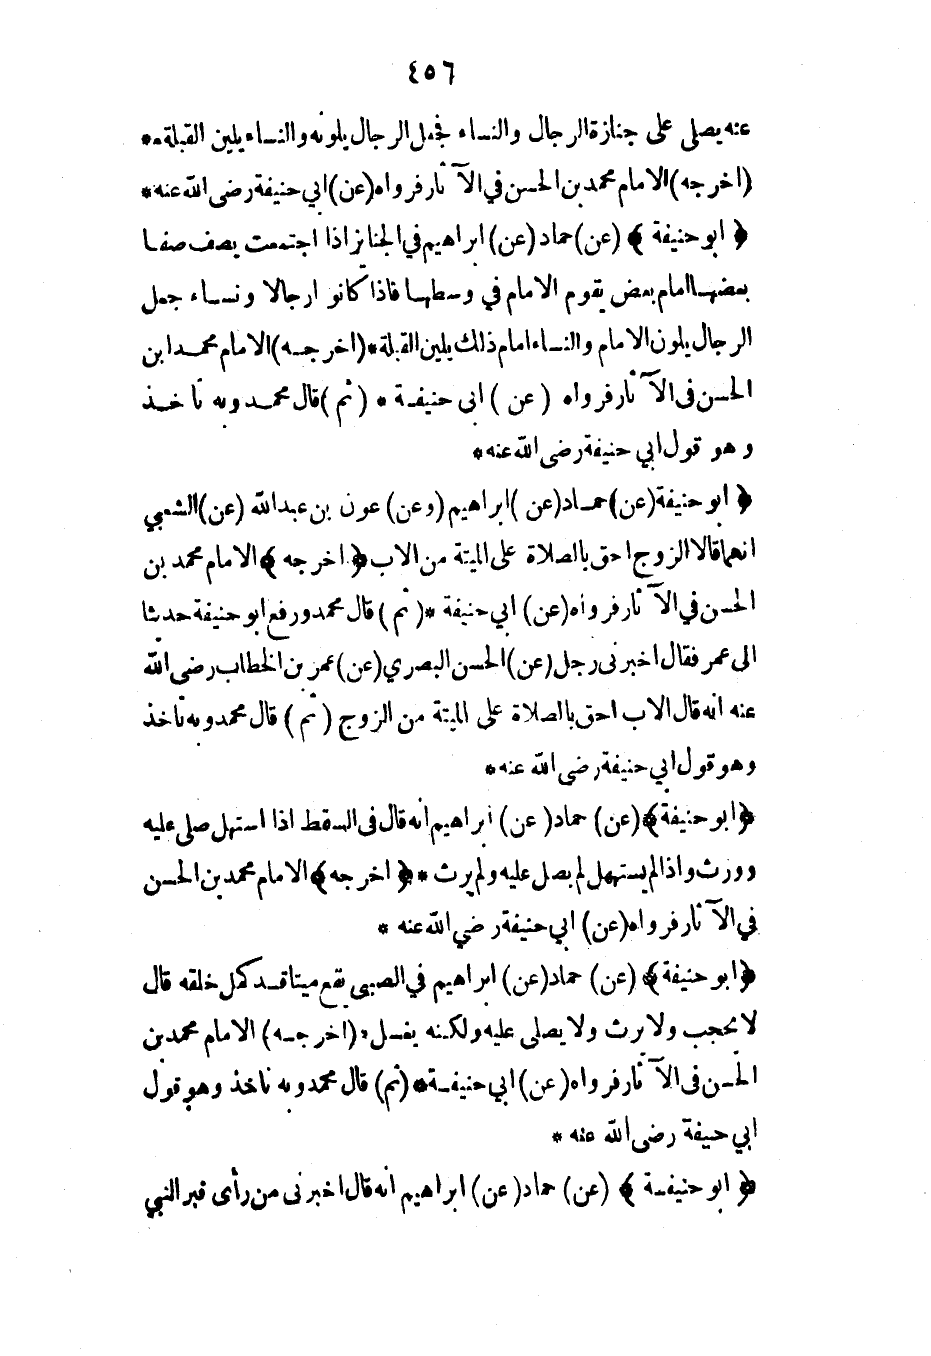 ٤٥٦
عنه يصلى على جنازة الرجال والنساء فجعل الرجال يلونه والنساء يلين القبلة *
(اخرجه) الامام محمد بن الحسن في الآثار فرواه (عن) ابي حنيفة رضى الله عنه *
﴿ ابو حنيفة ﴾ (عن) حماد (عن) ابراهيم في الجنائز اذا اجتمعت يصف صفا
بعضها امام بعض يقوم الامام في وسطها فاذا كانوا رجالا ونساء جعل
الرجال يلون الامام والنساء امام ذلك يلين القبلة * (اخرجه) الامام محمد ابن
الحسن فى الآثار فرواه (عن) ابى حنيفة * (ثم) قال محمد وبه ناخذ
وهو قول ابي حنيفة رضى الله عنه *
﴿ ابو حنيفة (عن) حماد (عن) ابراهيم (وعن) عون بن عبد الله (عن) الشعبي
انهما قالا الزوج احق بالصلاة على الميتة من الاب ﴿ اخرجه ﴾ الامام محمد بن
الحسن في الآثار فرواه (عن) ابي حنيفة * (ثم) قال محمد ورفع ابو حنيفة حديثا
الى عمر فقال اخبرنى رجل (عن) الحسن البصري (عن) عمر بن الخطاب رضى الله
عنه انه قال الاب احق بالصلاة على الميتة من الزوج (ثم) قال محمد وبه ناخذ
وهو قول ابي حنيفة رضى الله عنه *
﴿ ابو حنيفة ﴾ (عن) حماد (عن) ابراهيم انه قال فى السقط اذا استهل صلى عليه
وورث واذا لم يستهل لم يصل عليه ولم يرث * ﴿ اخرجه ﴾ الامام محمد بن الحسن
في الآثار فرواه (عن) ابي حنيفة رضي الله عنه *
﴿ ابو حنيفة ﴾ (عن) حماد (عن) ابراهيم في الصبى يقع ميتا قد كمل خلقه قال
لا يحجب ولا يرث ولا يصلى عليه ولكنه يغسل * (اخرجه) الامام محمد بن
الحسن فى الآثار فرواه (عن) ابي حنيفة * (ثم) قال محمد وبه ناخذ وهو قول
ابي حيفة رضى الله عنه *
﴿ ابو حنيفة ﴾ (عن) حماد (عن) ابراهيم انه قال اخبرنى من رأى قبر النبي